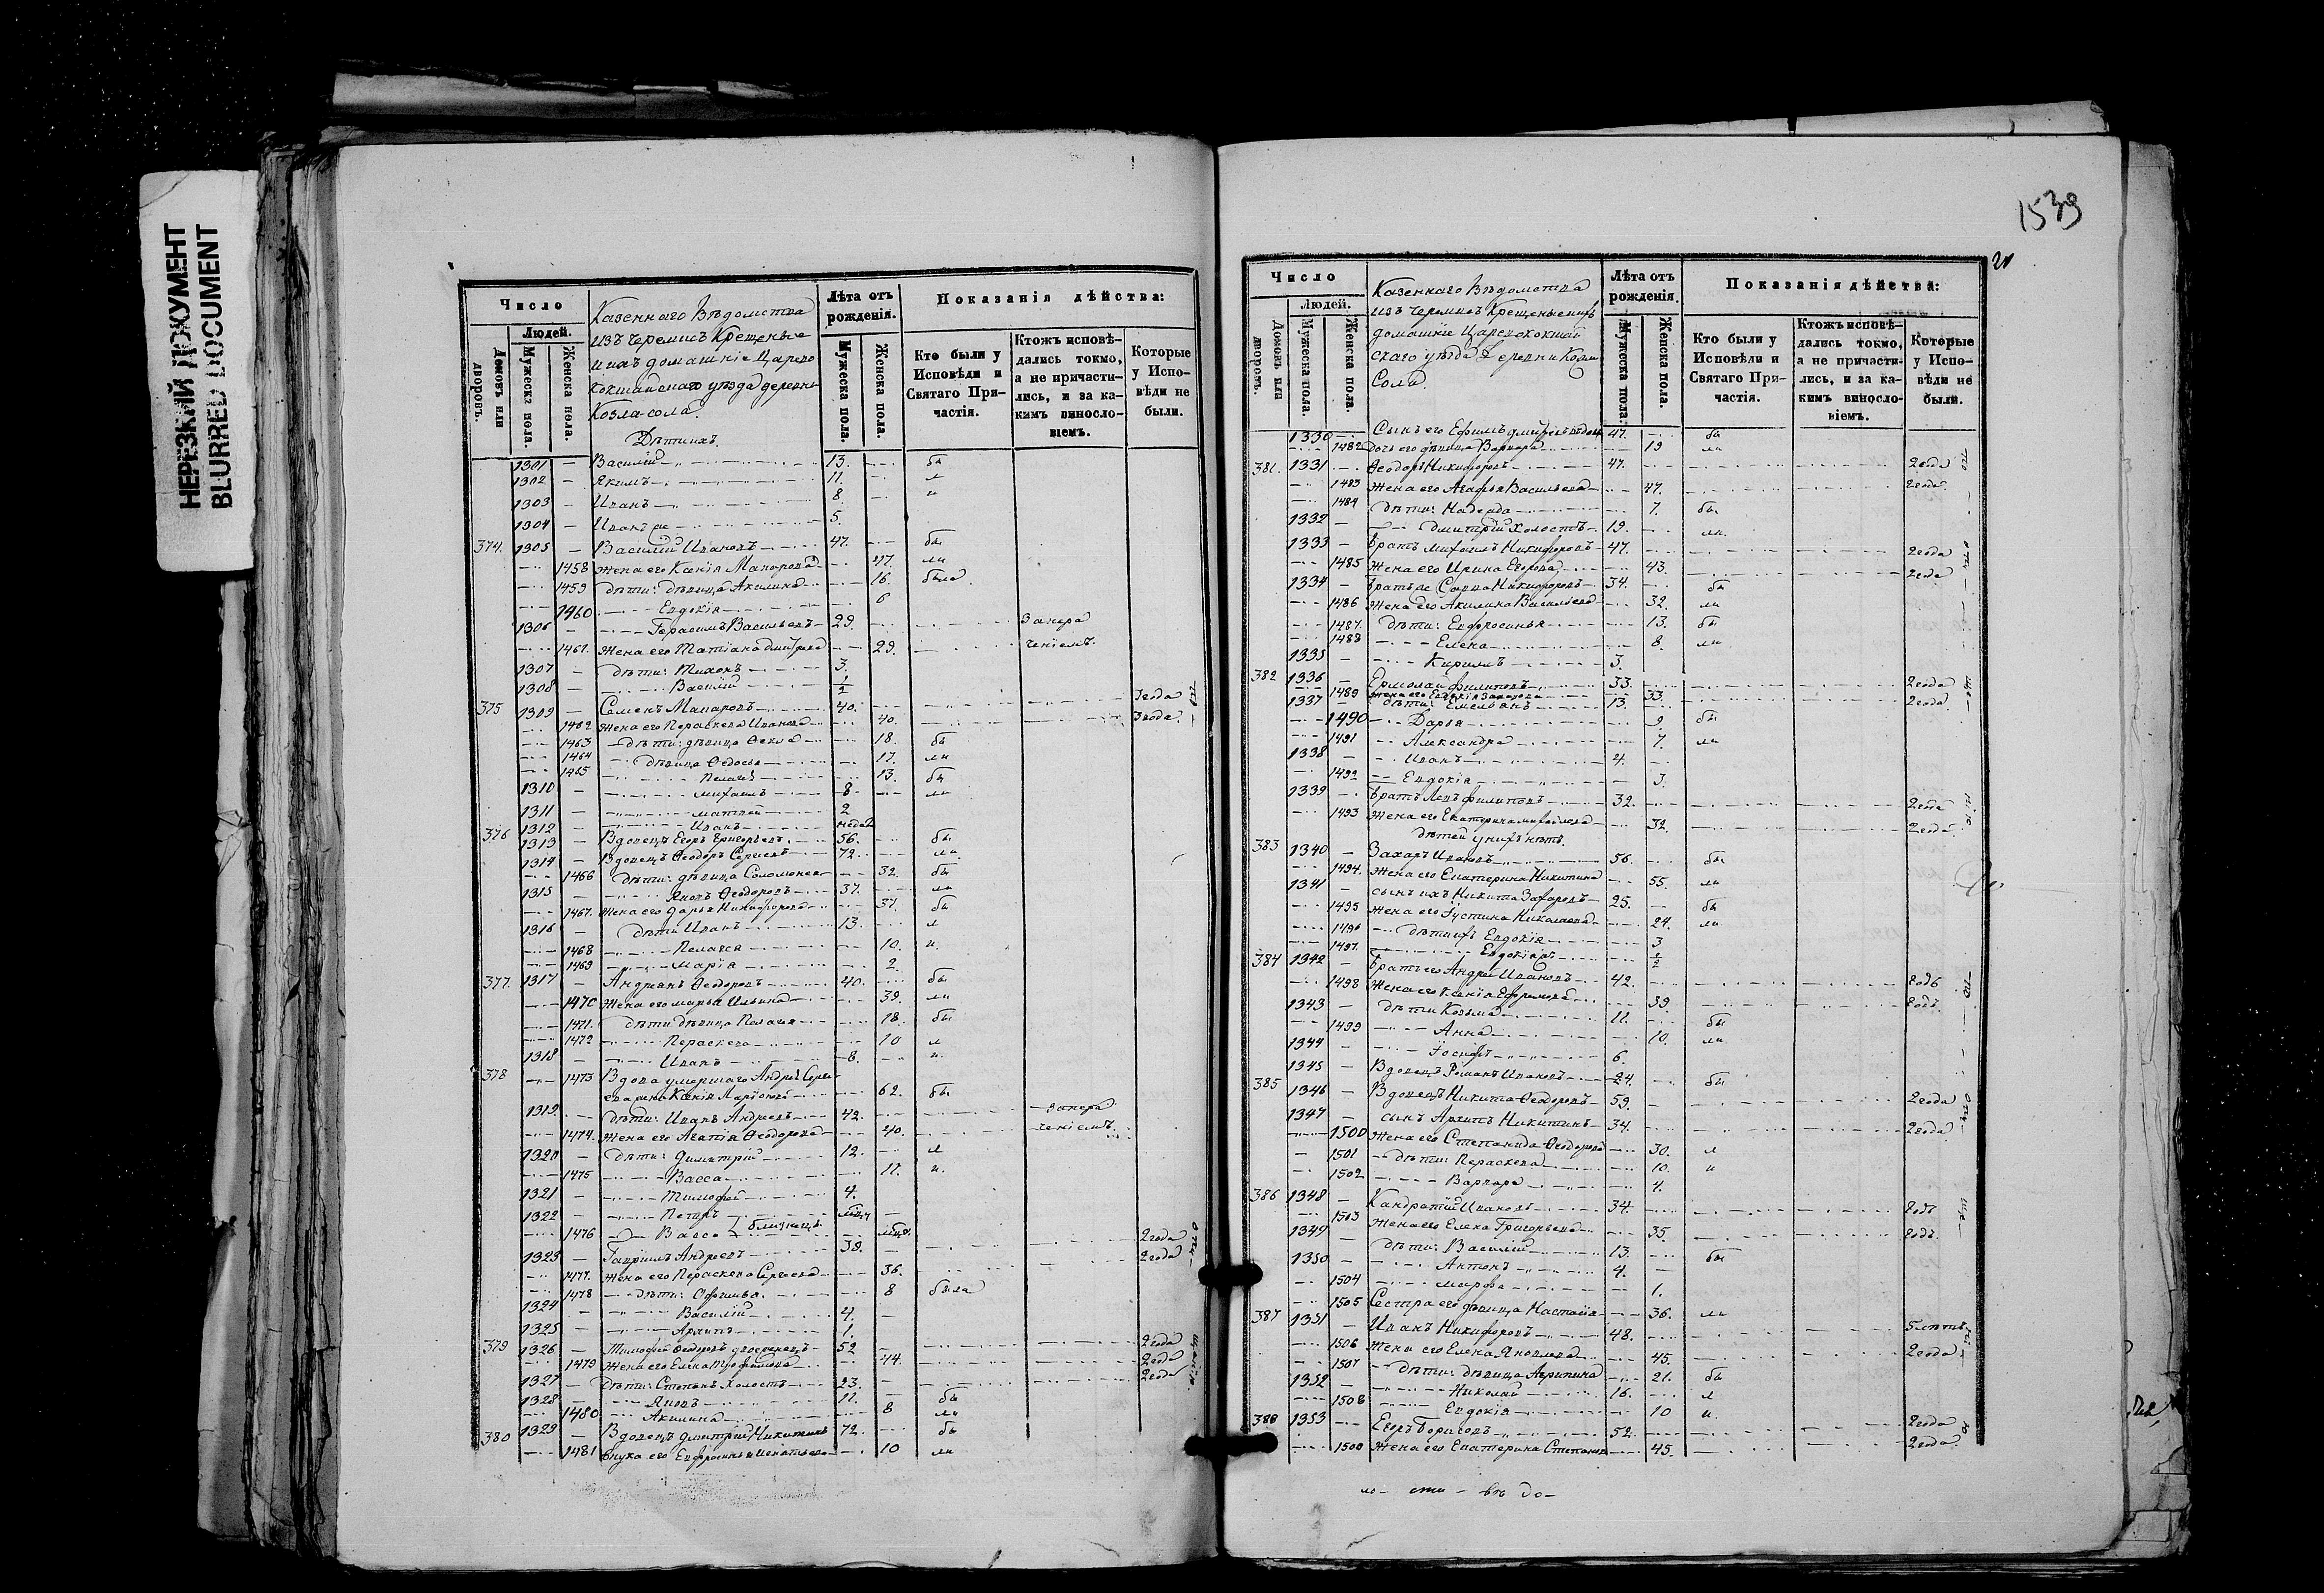 НЕРЕЗКИЙ ДОКУМЕНТ
BLURRED DOCUMENT
Число
Людей.
Домовъ или дворовъ.
Мужеска пола.
Женска пола.
Казеннаго Вѣдомства
изъ Черемисъ Крещеные
и ихъ домашніе Царево
кокшайскаго уѣзда деревни
Козла-сола.
Лѣта отъ рожденія.
Мужеска пола.
Женска пола.
Показанія дѣйства:
Кто были у Исповѣди и Святаго Причастія.
Ктожъ исповѣдались токмо, а не причастились, и за какимъ винословіемъ.
Которые у Исповѣди не были.
Дѣти ихъ
1301 — Василій 13. бы
1302 — Якимъ 11. л
1303 — Иванъ 8. и
1304 — Иванъ же 5.
374. 1305 — Василій Ивановъ 47. бы
1458 Жена его Ксенія Макарова 47. ли
1459 Дѣти: дѣвица Акилина 16. была
1460 Евдокія 6
1306 — Герасимъ Васильевъ 29. Занера
1461. Жена его Татіана Дмитріева 29. ченіемъ
1307 — Дѣти: Тихонъ 3.
1308 — Василій 1/2
375 1309 — Семенъ Макаровъ 40. 3 года
1462 Жена его Параскева Иванова 40. 3 года
1463 Дѣти: дѣвица Фекла 18. бы
1464 Дѣвица Федосья 17. ли
1465 Пелагія 13. бы
1310 — Михаилъ 8 ли
1311 — Матвей 2
1312 — Иванъ
376 1313 — Вдовецъ Егоръ Григорьевъ 56. бы
1314 — Вдовецъ Феодоръ Сергѣевъ 72. ли
1466 Дѣти: дѣвица Соломонея 32. бы
1315 — Яковъ Феодоровъ 37. ли
1467. Жена его Дарья Никифорова 37. бы
1316 — Дѣти Иванъ 13. л
1468 Пелагея 10. и.
1469 Марія 2.
377. 1317 — Андреянъ Феодоровъ 40. бы
1470 Жена его Марья Ильина 39. ли
1471. Дѣти дѣвица Пелагея 18. бы
1472 Параскева 10 л
1318 — Иванъ 8. и.
378 1473 Вдова умершаго Андрея Серге
ева жена Ксенія Ларіонова 62. бы
1319. — Дѣти: Иванъ Андреевъ 42. Занера
1474. Жена его Агапія Феодорова 40. ченіемъ
1320 — Дѣти: Димитрій 12. л
1475 Васса 11. и.
1321 — Тимофей 4.
1322 — Петръ
1476 Васса } близнецы
1323 — Гавріилъ Андреевъ 39. 2 года
1477. Жена его Параскева Сергѣева 36. 2 года
1478 Дѣти: Офимья 8 была
1324 — Василій 4.
1325 — Архипъ 1.
379 1326 — Тимофей Федоровъ двоеженецъ 52 2 года
1479 Жена его Елена Трофимова 44. 2 года
1327 — Дѣти: Степанъ Холостъ 23. 2 года
1328 — Яковъ 11. бы
1480 Акилина 8 ли
380 1329 — Вдовецъ Дмитрій Никитинъ 72. бы
1481 Внука его Евфросинья Игнатьева 10 ли
1539
21
Число
Людей.
Домовъ или дворовъ.
Мужеска пола.
Женска пола.
Казеннаго Вѣдомства
изъ Черемисъ Крещеные и ихъ
домашніе Царевококшай
скаго уѣзда Деревни Козла
Сола.
Лѣта отъ рожденія.
Мужеска пола.
Женска пола.
Показанія дѣйства:
Кто были у Исповѣди и Святаго Причастія.
Ктожъ исповѣдались токмо, а не причастились, и за какимъ винословіемъ.
Которые у Исповѣди не были.
1330 — Сынъ его Ефимъ Дмитріевъ вдовъ 47. бы
1482 Дочь его дѣвица Варвара 19 ли
381. 1331 — Феодоръ Никифоровъ 47. 2 года
1483 Жена его Агафья Васильева 47. 2 года
1484 Дѣти: Надежда 7. бы
1332 — Дмитрій Холостъ 19. ли
1333 — Братъ Михаилъ Никифоровъ 47. 2 года
1485 Жена его Ирина Егорова 43. 2 года
1334 — Братъ же Савва Никифоровъ 34. бы
1486 Жена его Акилина Васильева 32. ли
1487. Дѣти: Евфросинья 13. бы
1488 Елена 8. ли
1335 — Кириллъ 3.
382 1336 — Ермолай Филиповъ 33. 2 года
1489 Жена его Евдокія Захарова 33. 2 года
1337 — Дѣти: Емельянъ 13.
1490 Дарья 9. бы
1491 Александра 7. ли
1338 — Иванъ 4.
1492 Евдокія 3.
1339 — Братъ Левъ Филиповъ 32. 2 года
1493 Жена его Екатерина Михайлова 32. 2 года
Дѣтей у нихъ нѣтъ.
383 1340 — Захаръ Ивановъ 56. бы
1494. Жена его Екатерина Никитина 55. ли
1341 — сынъ ихъ Никита Захаровъ 25. бы
1495 Жена его Іустина Николаева 24. ли
1496 Дѣти ихъ Евдокія 3
1497. Евдокія же 1/2
384 1342 — Братъ его Андрей Ивановъ 42. годъ
1498 Жена его Ксенія Ефремова 39. годъ
1343 — Дѣти Козьма 11. бы
1499 Анна 10. ли
1344 — Іосифъ 6.
1345 — Вдовецъ Романъ Ивановъ 24. бы
385 1346 — Вдовецъ Никита Феодоровъ 59. 2 года
1347 — сынъ Архипъ Никитинъ 34. 2 года
1500 Жена его Степанида Феодорова 30. л
1501 Дѣти: Параскева 10. и
1502 Варвара 4.
386 1348 — Кандратій Ивановъ 34. годъ
1503 Жена его Елена Григорьева 35. годъ
1349 — Дѣти: Василій 13. бы
1350 — Антонъ 4.
1504 Марфа 1.
1505 Сестра его дѣвица Настасія 36. ли
387 1351 — Иванъ Никифоровъ 48. 5 лѣтъ
1506 Жена его Елена Яковлева 45. 2 года
1507 Дѣти: дѣвица Агрипина 21. бы
1352 — Николай 16. л
1508 Евдокія 10 и
388 1353 — Егоръ Борисовъ 52. 2 года
1509 Жена его Екатерина Степанова 45. 2 года